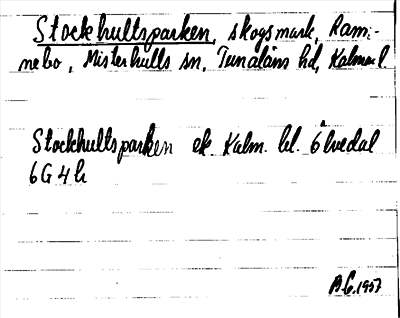 Stockhultsparken, skogsmark, Ram-
nebo, Misterhults sn, Tunaläns hd, Kalmar l.
Stockhultsparken ek. Kalm. bl. 6 Ålvedal
6G4h
1957